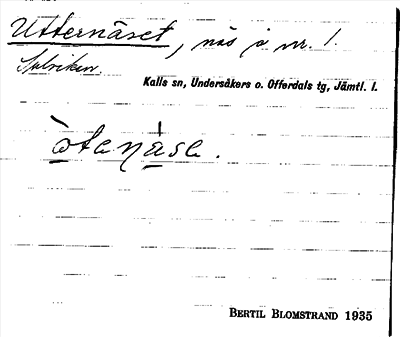 Utternäset, näs å nr. 1.
Kalls sn, Undersåkers o. Offerdals tg, Jämtl. l.
òtenase.
BERTIL BLOMSTRAND 1935